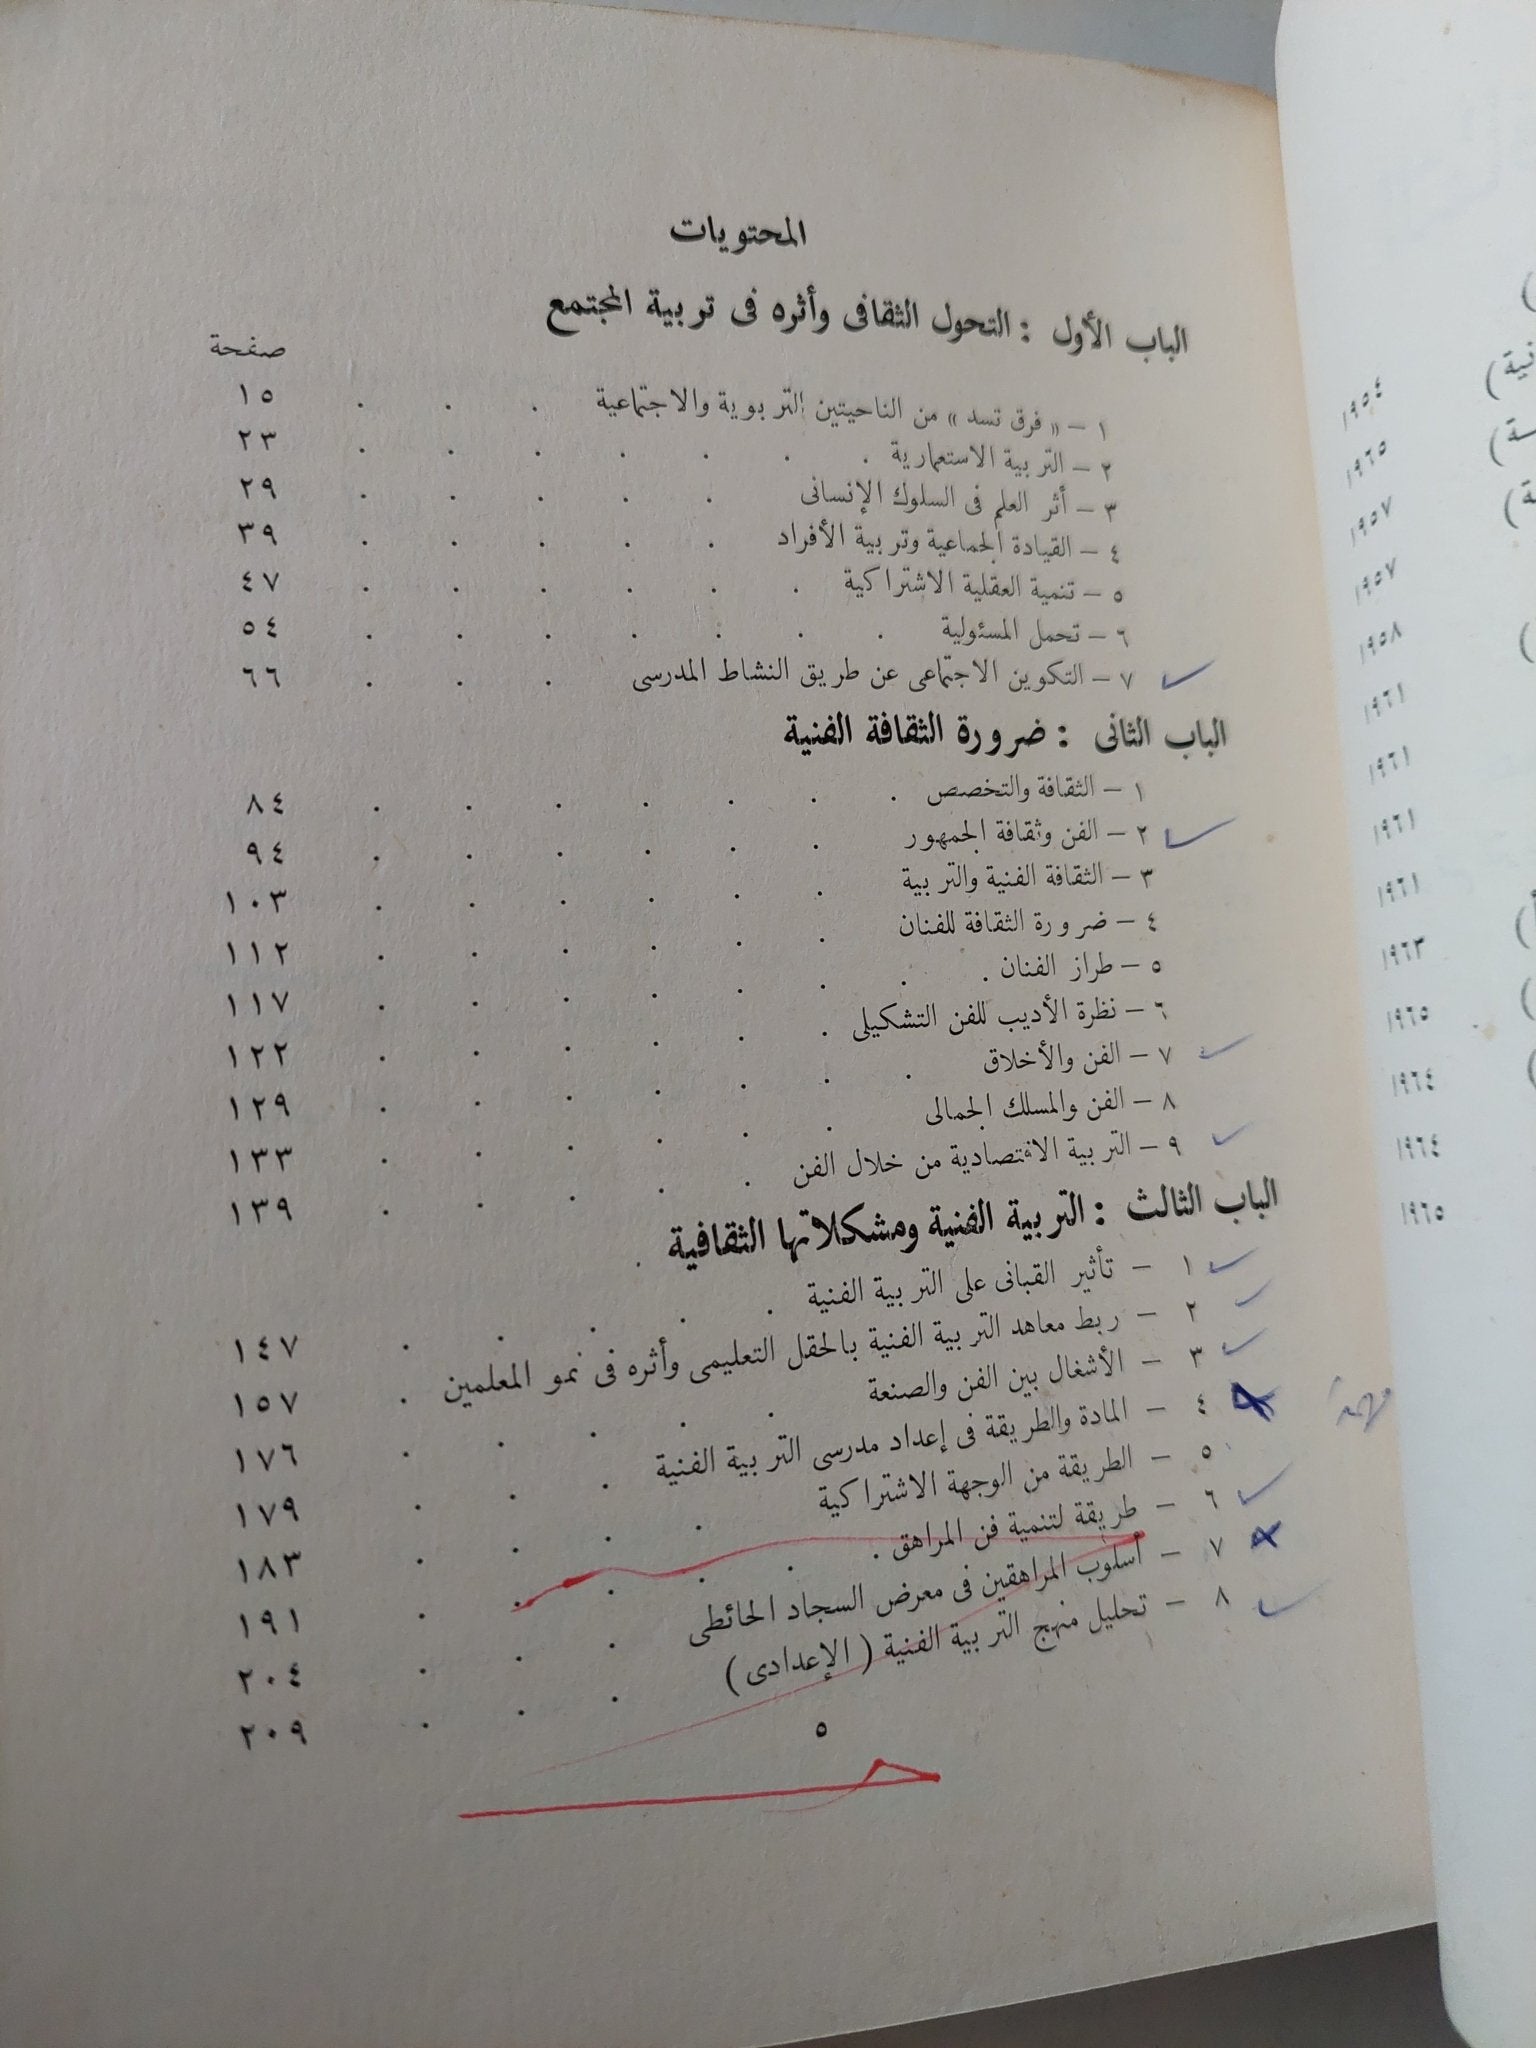 المحتويات
الباب الأول : التحول الثقافى وأثره فى تربية المجتمع
صفحة
١ – « فرق تسد » من الناحيتين التربوية والاجتماعية . . . ١٥
٢ – التربية الاستعمارية . . . . . . . ٢٣
٣ – أثر العلم فى السلوك الإنسانى . . . . . ٢٩
٤ – القيادة الجماعية وتربية الأفراد . . . . . ٣٩
٥ – تنمية العقلية الاشتراكية . . . . . . ٤٧
٦ – تحمل المسئولية . . . . . . . ٥٤
٧ – التكوين الاجتماعى عن طريق النشاط المدرسى . . . ٦٦
الباب الثانى : ضرورة الثقافة الفنية
١ – الثقافة والتخصص . . . . . . . ٨٤
٢ – الفن وثقافة الجمهور . . . . . . ٩٤
٣ – الثقافة الفنية والتربية . . . . . . ١٠٣
٤ – ضرورة الثقافة للفنان . . . . . . ١١٢
٥ – طراز الفنان . . . . . . . . ١١٧
٦ – نظرة الأديب للفن التشكيلى . . . . . . ١٢٢
٧ – الفن والأخلاق . . . . . . . ١٢٩
٨ – الفن والمسلك الجمالى . . . . . . ١٣٣
٩ – التربية الاقتصادية من خلال الفن . . . . . ١٣٩
الباب الثالث : التربية الفنية ومشكلاتها الثقافية .
١ – تأثير القبانى على التربية الفنية . . . . . ١٤٧
٢ – ربط معاهد التربية الفنية بالحقل التعليمى وأثره فى نمو المعلمين . ١٥٧
٣ – الأشغال بين الفن والصنعة . . . . . ١٧٦
٤ – المادة والطريقة فى إعداد مدرسى التربية الفنية . . . ١٧٩
مهمة
٥ – الطريقة من الوجهة الاشتراكية . . . . ١٨٣
٦ – طريقة لتنمية فن المراهق . . . . . . ١٩١
٧ – أسلوب المراهقين فى معرض السجاد الحائطى . . . ٢٠٤
٨ – تحليل منهج التربية الفنية ( الإعدادى ) . . . ٢٠٩
٥
١٩٥٤
١٩٦٥
١٩٥٧
١٩٥٧
١٩٥٨
١٩٦١
١٩٦١
١٩٦١
١٩٦١
١٩٦٣
١٩٦٥
١٩٦٤
١٩٦٤
١٩٦٥